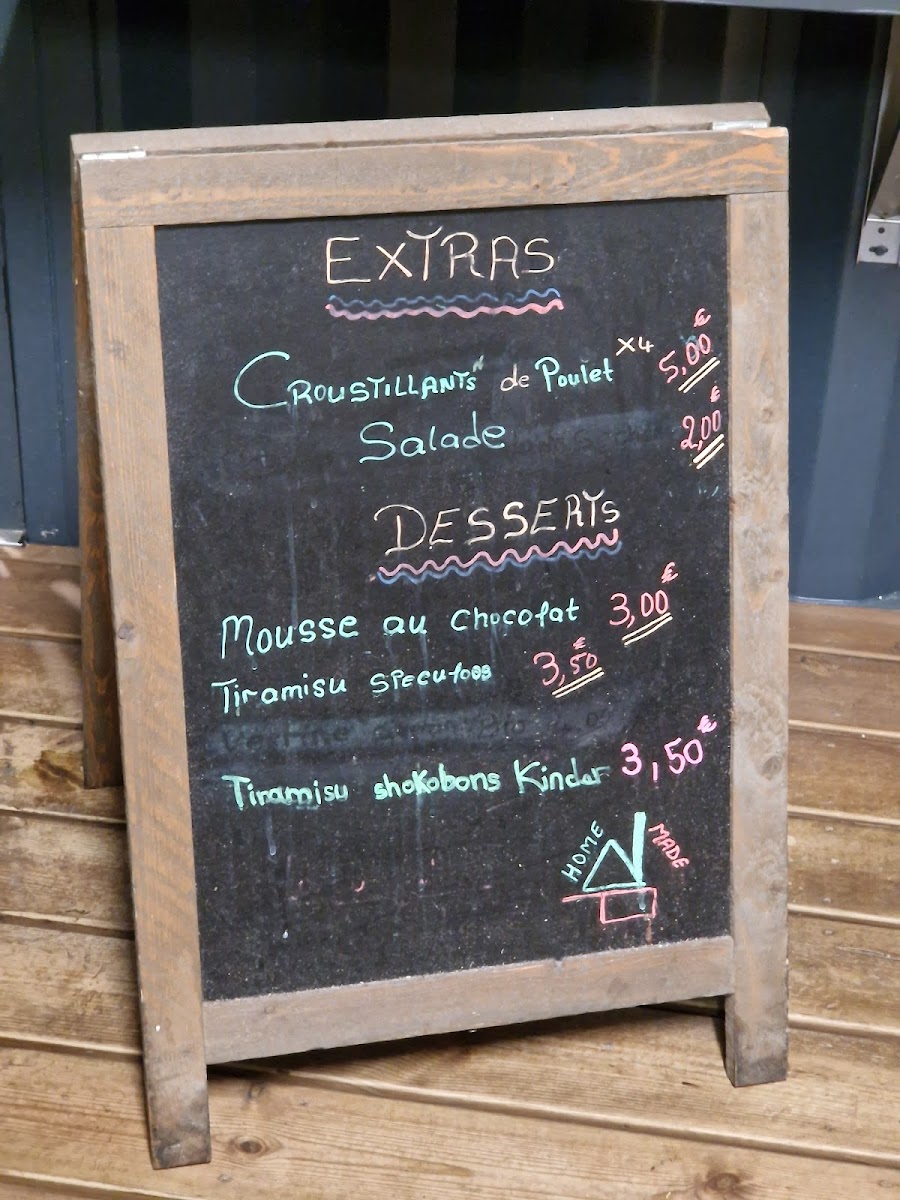 EXTRAS
CROUSTILLANTS de Poulet x4 5,00€
Salade 2,00€
DESSERTS
Mousse au chocolat 3,00€
Tiramisu speculoos 3,50€
Tiramisu shokobons Kinder 3,50€
HOME MADE